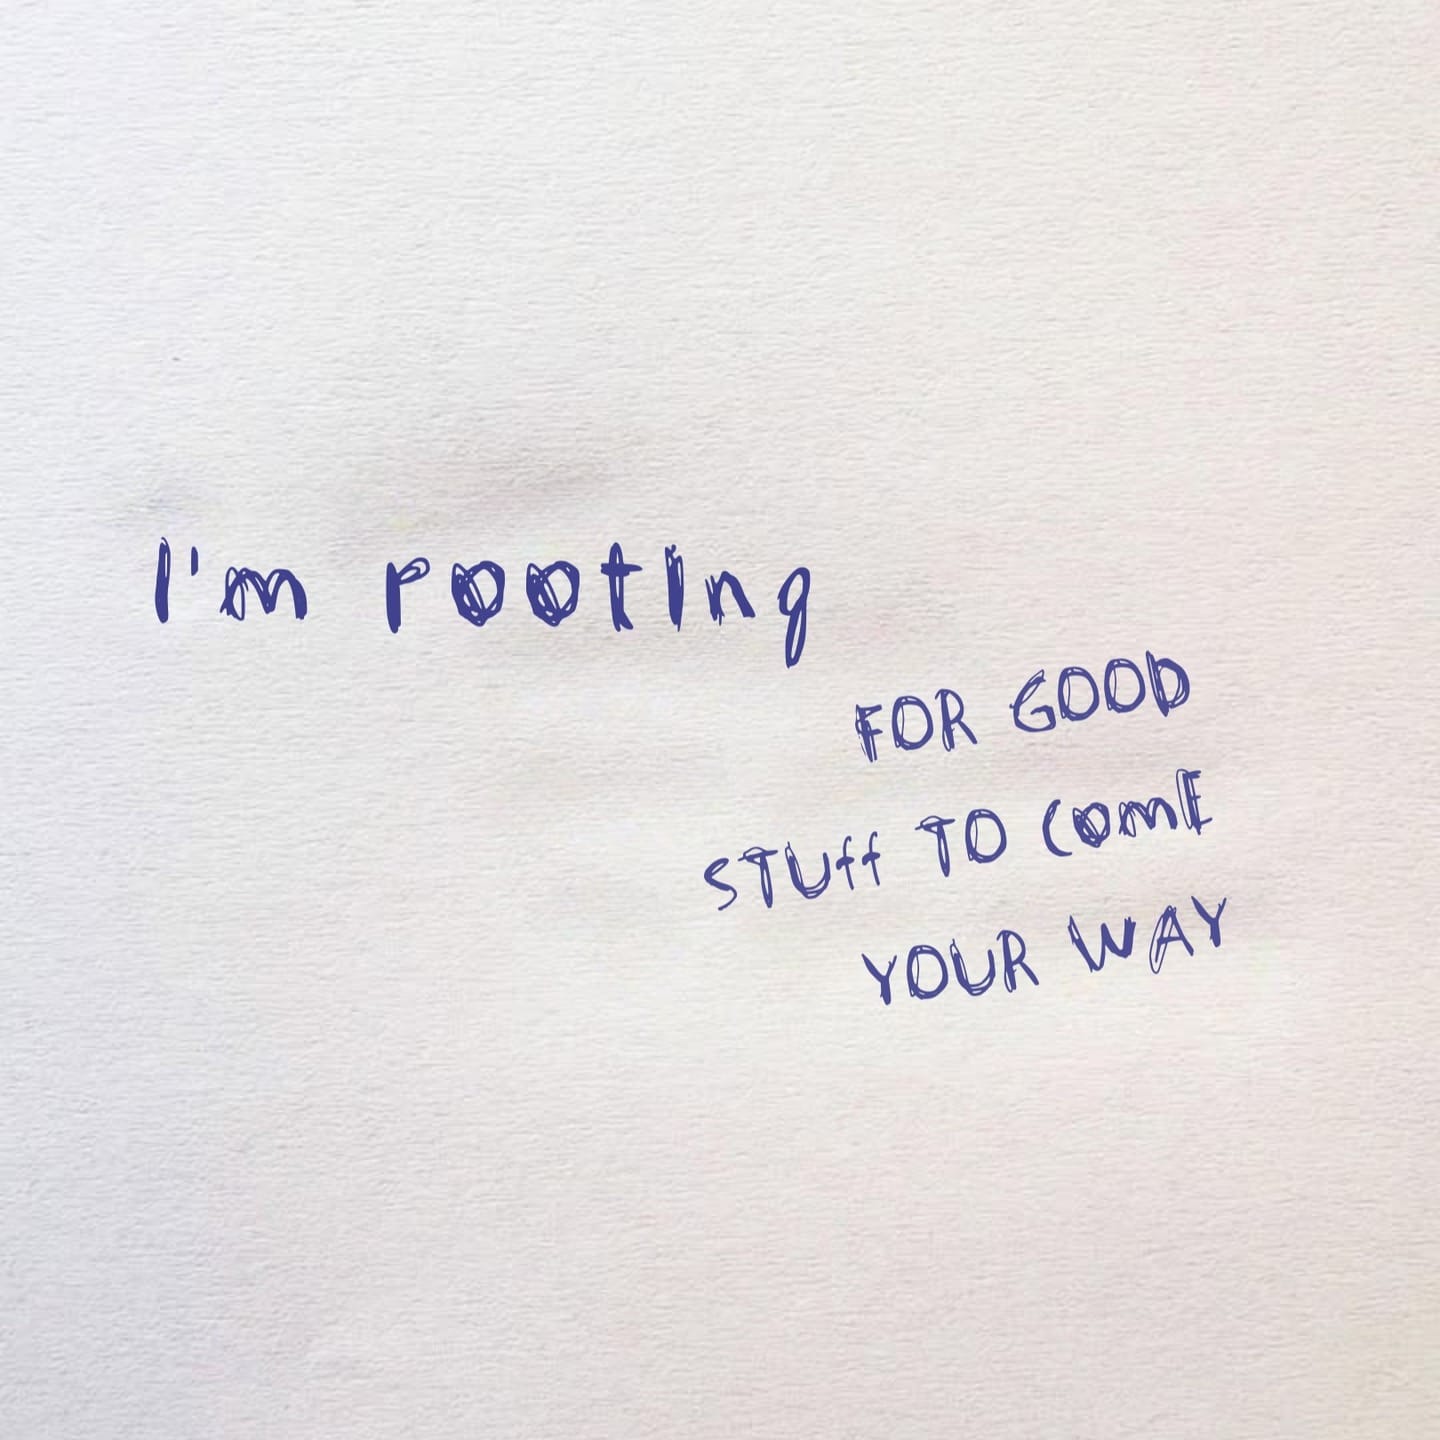 I'm rooting
FOR GOOD
STUff TO COmE
YOUR WAY